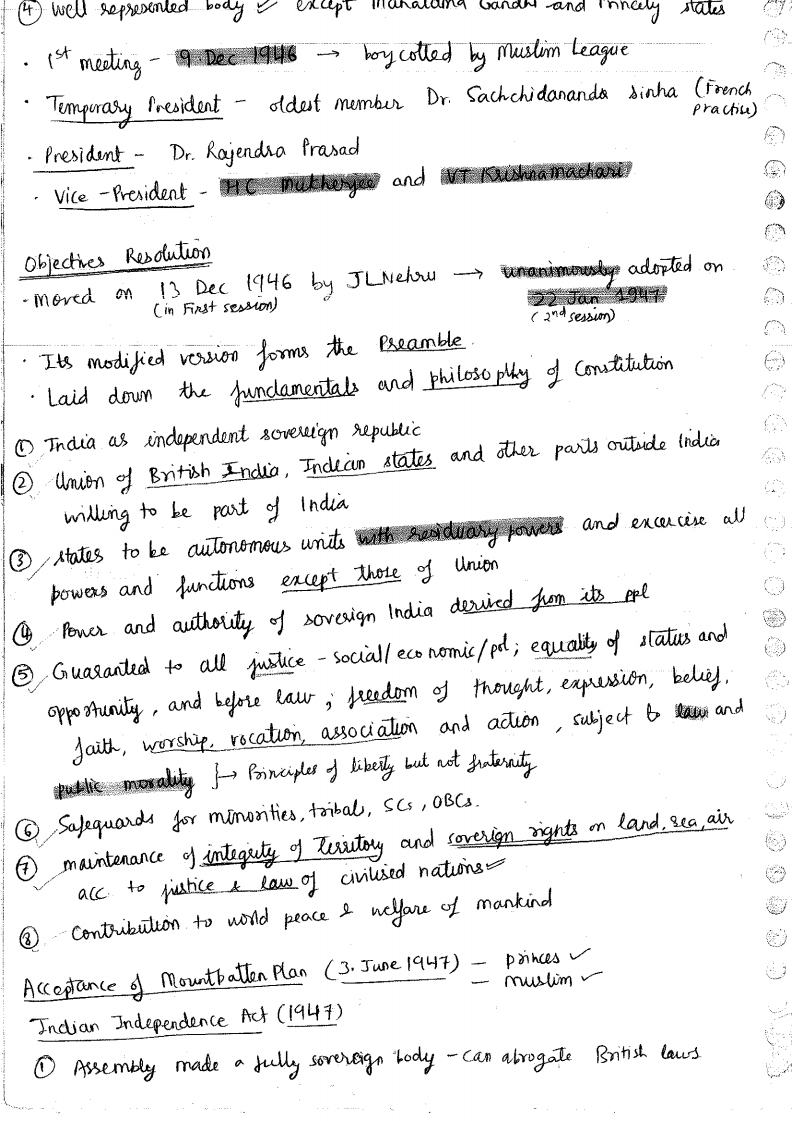 ④ Well represented body ✓ except Mahatama Gandhi and Princely states
· 1st meeting - 9 Dec 1946 → boycotted by Muslim League
· Temporary President - oldest member Dr. Sachchidananda Sinha (French
practise)
· President - Dr. Rajendra Prasad
· Vice-President - HC Mukherjee and VT Krishnamachari
Objectives Resolution
- moved on 13 Dec 1946 by JLNehru → unanimously adopted on
(in First session) 22 Jan 1947
(2nd session)
· Its modified version forms the Preamble.
· Laid down the fundamentals and philosophy of Constitution
① India as independent sovereign republic
② Union of British India, Indian states and other parts outside India
willing to be part of India
③ states to be autonomous units with residuary powers and excercise all
powers and functions except those of Union
④ Power and authority of soverign India derived from its ppl
⑤ Guaranted to all justice - social/economic/pol; equality of status and
opportunity, and before law; freedom of thought, expression, belief,
faith, worship, vocation, association and action, subject to law and
public morality }→ Principles of liberty but not fraternity
⑥ Safeguards for minorities, tribal, SCs, OBCs.
⑦ maintenance of integrity of Territory and soverign rights on land, sea, air
acc. to justice & law of civilised nations ✓
⑧ Contribution to world peace & welfare of mankind
Acceptance of Mountbatten Plan (3. June 1947) - princes ✓
- muslim ✓
Indian Independence Act (1947)
① Assembly made a fully sovereign body - can abrogate British laws